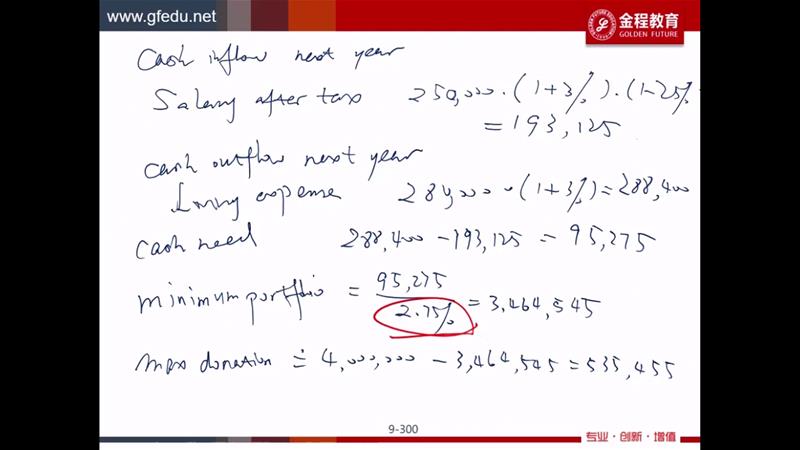 www.gfedu.net
金程教育
GOLDEN FUTURE
Cash inflow next year
Salary after tax 250,000·(1+3%)·(1-25%
=193,125
Cash outflow next year
Living expense 280,000·(1+3%)=288,400
Cash need 288,400-193,125=95,275
minimum portfolio = 95,275
2.75% = 3,464,545
max donation = 4,000,000 - 3,464,545 = 535,455
9-300
专业·创新·增值